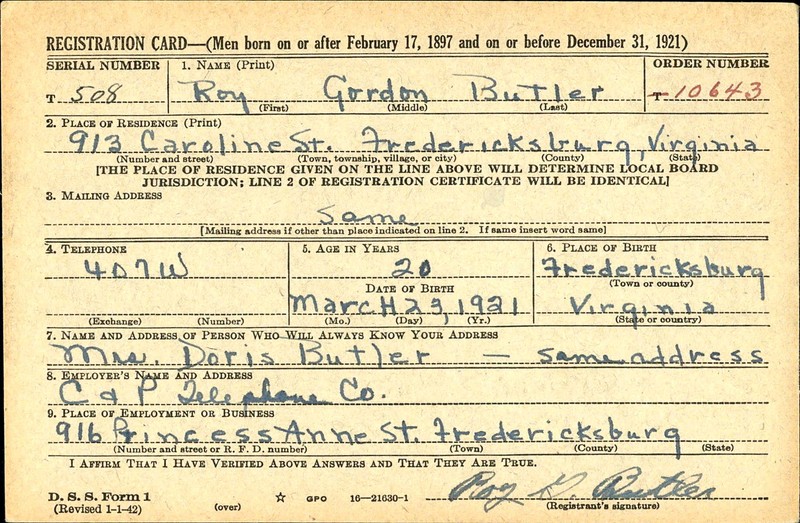 REGISTRATION CARD—(Men born on or after February 17, 1897 and on or before December 31, 1921)
SERIAL NUMBER 1. NAME (Print) ORDER NUMBER
T 508 Roy Gordon Butler T 10643
(First) (Middle) (Last)
2. PLACE OF RESIDENCE (Print)
913 Caroline St. Fredericksburg, Virginia
(Number and street) (Town, township, village, or city) (County) (State)
[THE PLACE OF RESIDENCE GIVEN ON THE LINE ABOVE WILL DETERMINE LOCAL BOARD
JURISDICTION; LINE 2 OF REGISTRATION CERTIFICATE WILL BE IDENTICAL]
3. MAILING ADDRESS
Same
[Mailing address if other than place indicated on line 2. If same insert word same]
4. TELEPHONE 5. AGE IN YEARS 6. PLACE OF BIRTH
407W 20 Fredericksburg
DATE OF BIRTH (Town or county)
March 23, 1921 Virginia
(Exchange) (Number) (Mo.) (Day) (Yr.) (State or country)
7. NAME AND ADDRESS OF PERSON WHO WILL ALWAYS KNOW YOUR ADDRESS
Mrs. Doris Butler — same address
8. EMPLOYER'S NAME AND ADDRESS
C & P Telephone Co.
9. PLACE OF EMPLOYMENT OR BUSINESS
916 Princess Anne St. Fredericksburg
(Number and street or R. F. D. number) (Town) (County) (State)
I AFFIRM THAT I HAVE VERIFIED ABOVE ANSWERS AND THAT THEY ARE TRUE.
D. S. S. Form 1 GPO 16—21630-1 Roy G. Butler
(Revised 1-1-42) (over) (Registrant's signature)